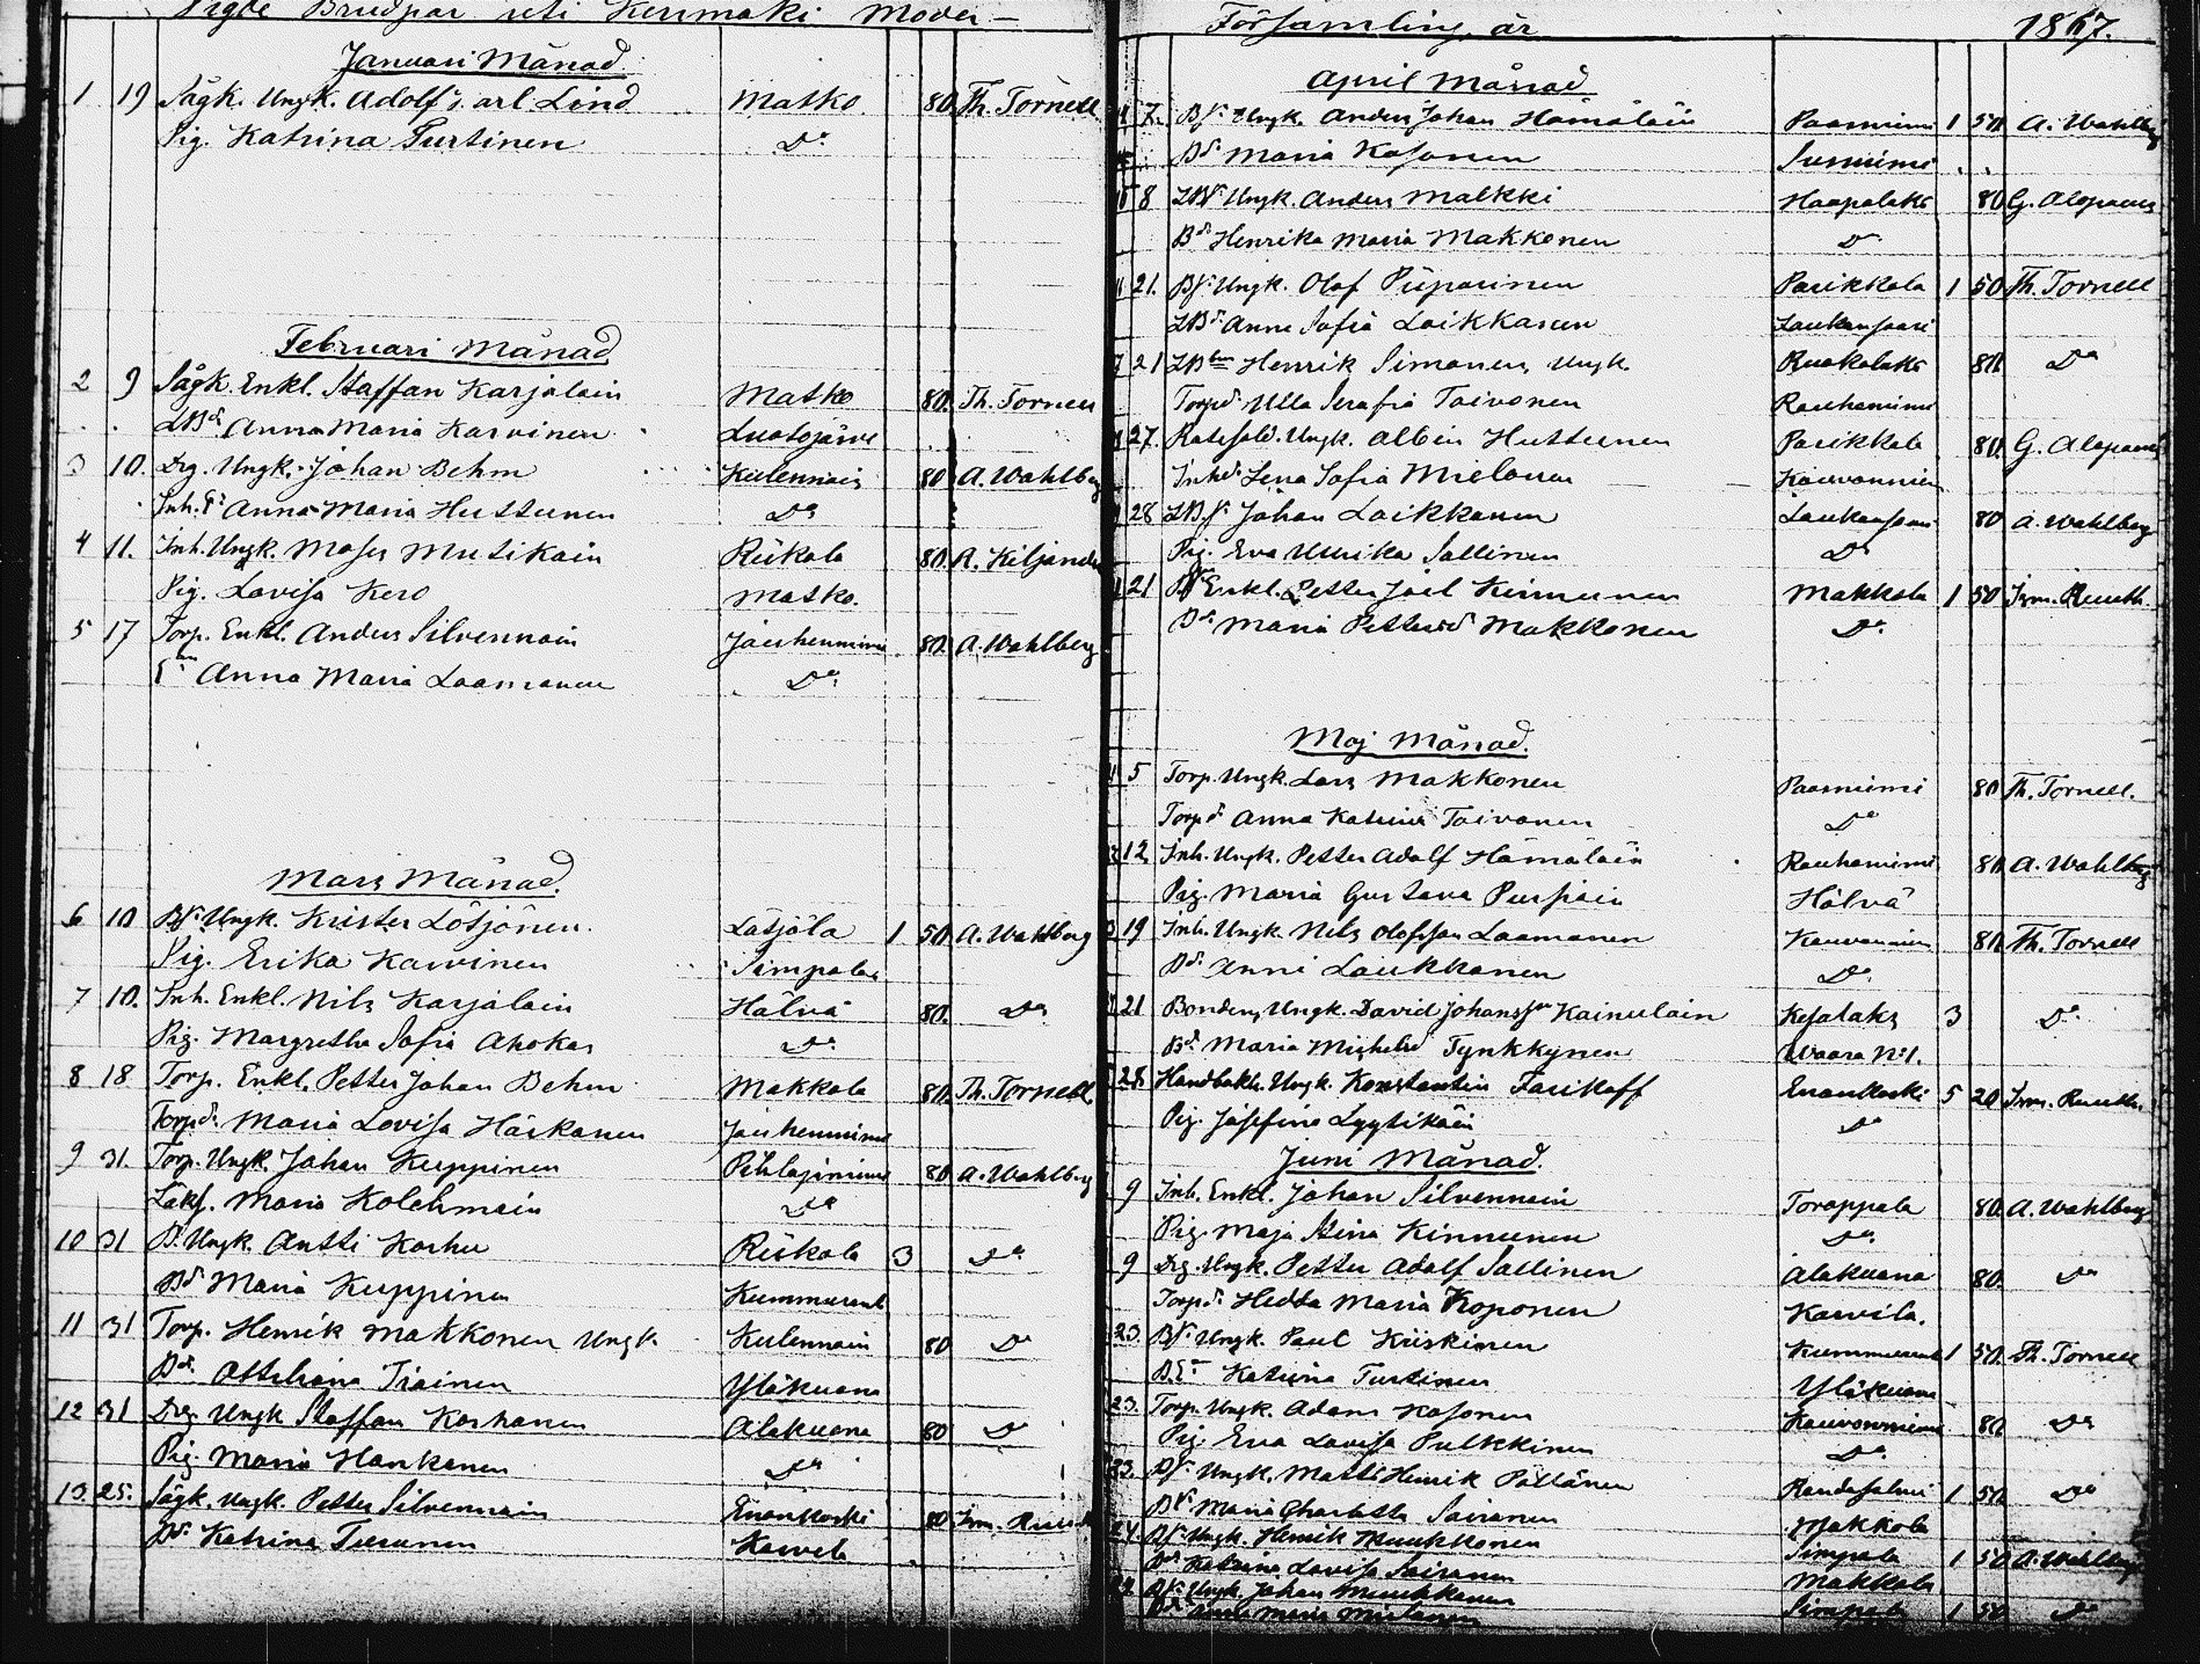 Vigde Brudpar uti Kerimäki Moder-
Januari Månad
1 19 Sågk. Ungk. Adolf Carl Lind Matko 80. Th. Tornell.
Pig. Katrina Turtinen Do
Februari Månad
2 9 Sågk. Enkl. Staffan Karjalain Matko 80. Th. Tornell
LBd Anna Maria Karvinen Luotojärvi
3 10. Drg. Ungk. Johan Behm Kulennois 80 A. Wahlberg
Inh. Anna Maria Huttunen Do
4 11. Inh. Ungk. Moses Mutikain Riikola 80. A. Kiljander
Pig. Lovisa Kero Matko.
5 17 Torp. Enkl. Anders Silvennoin Jouhenniemi 80. A. Wahlberg
Anna Maria Laamanen Do
Mars Månad.
6 10 Bs. Ungk. Krister Lötjönen. Lätjölä 1 50 A. Wahlberg
Pig. Erika Karvinen Simpala
7 10. Inh. Enkl. Nils Karjalain Hälvä 80. Do
Pig. Margretha Sofia Ahokas Do
8 18 Torp. Enkl. Petter Johan Behm Makkola 80. Th. Tornell
Torpd. Maria Lovisa Härkönen Jouhenniemi
9 31. Torp. Ungk. Johan Kuppinen Pihlajaniemi 80 A. Wahlberg
Maria Kolehmain Do
10 31 B. Ungk. Antti Korhu Riikola 3 Do
Bd Maria Kuppinen Kummuranta
11 31 Torp. Henrik Makkonen Ungk. Kulennois 80 Do
Bd. Ottiliana Tiainen Yläkuona
12 31 Drg. Ungk. Staffan Korhonen Alakuona 80 Do
Pig. Maria Hankanen Do
13. 25. Sågk. Ungk. Petter Silvennoin Enonkoski 80 Imm. Ruuth
Bd. Katrina Turunen Karvila
Församling år 1867.
April Månad
7. Bs. Ungk. Anders Johan Hämäläin Paasniemi 1 50 A. Wahlberg
Bd. Maria Kosonen Susiniemi
8 LBs. Ungk. Anders Malkki Haapalaks 80 G. Alopaeus
Bd. Henrika Maria Makkonen Do
21. Bs. Ungk. Olof Piiparinen Parikkala 1 50 Th. Tornell
LBd. Anna Sofia Laikkanen Laukansaari
21 LB Henrik Simonen, Ungk. Ruokolaks 80 Do
Torpd. Ulla Serafia Toivonen Rauhaniemi
27. Ungk. Albin Huttunen Parikkala 80. G. Alopaeus
Inhd. Lena Sofia Mielonen Kauvonniemi
28 LBs. Johan Laikkanen Laukansaari 80 A. Wahlberg
Pig. Eva Ulrika Sallinen Do
21 Enkl. Petter Joel Kinnunen Makkola 1 50 Imm. Ruuth.
Bd. Maria Pettersd Makkonen Do
Maj Månad.
5 Torp. Ungk. Lars Makkonen Paasniemi 80 Th. Tornell.
Torpd. Anna Katrina Toivonen Do
12 Inh. Ungk. Petter Adolf Hämäläin Rauhaniemi 80 A. Wahlberg
Pig. Maria Gustava Purhoin Hälvä
19 Inh. Ungk. Nils Olofsson Laamanen Kauvonniemi 80 Th. Tornell
Bd. Anni Laukkanen Do
21 Bonden, Ungk. David Johansson Kainulain Kesälaks 3 Do
Bd. Maria Michelsd Tynkkynen Waara No 1.
28 Handbokh. Ungk. Konstantin Farikoff Enonkoski 5 20 Imm. Ruuth.
Pig. Josefina Lyytikäin Do
Juni Månad.
9 Inh. Enkl. Johan Silvennoin Toroppala 80. A. Wahlberg
Pig. Maja Stina Kinnunen Do
9 Drg. Ungk. Petter Adolf Sallinen Alakuona 80. Do
Torpd. Hedda Maria Kroponen Karvila.
23. Bs. Ungk. Paul Kiiskinen Kummuranta 1 50. Th. Tornell
Katrina Turtinen Yläkuona
23. Torp. Ungk. Adam Kosonen Kauvonniemi 80 Do
Pig. Eva Lovisa Pulkkinen Do
23. Bs. Ungk. Matts Henrik Pöllänen Randasalmi 1 50 Do
Bd. Maria Charlotta Sairanen Makkola
24. Bs. Ungk. Henrik Muukkonen Simpala 1 50 A. Wahlberg
Bd Katrina Lovisa Sairanen Makkola
Bs. Ungk. Johan Muukkonen Simpala 1 50 Do
Bd Anna Maria